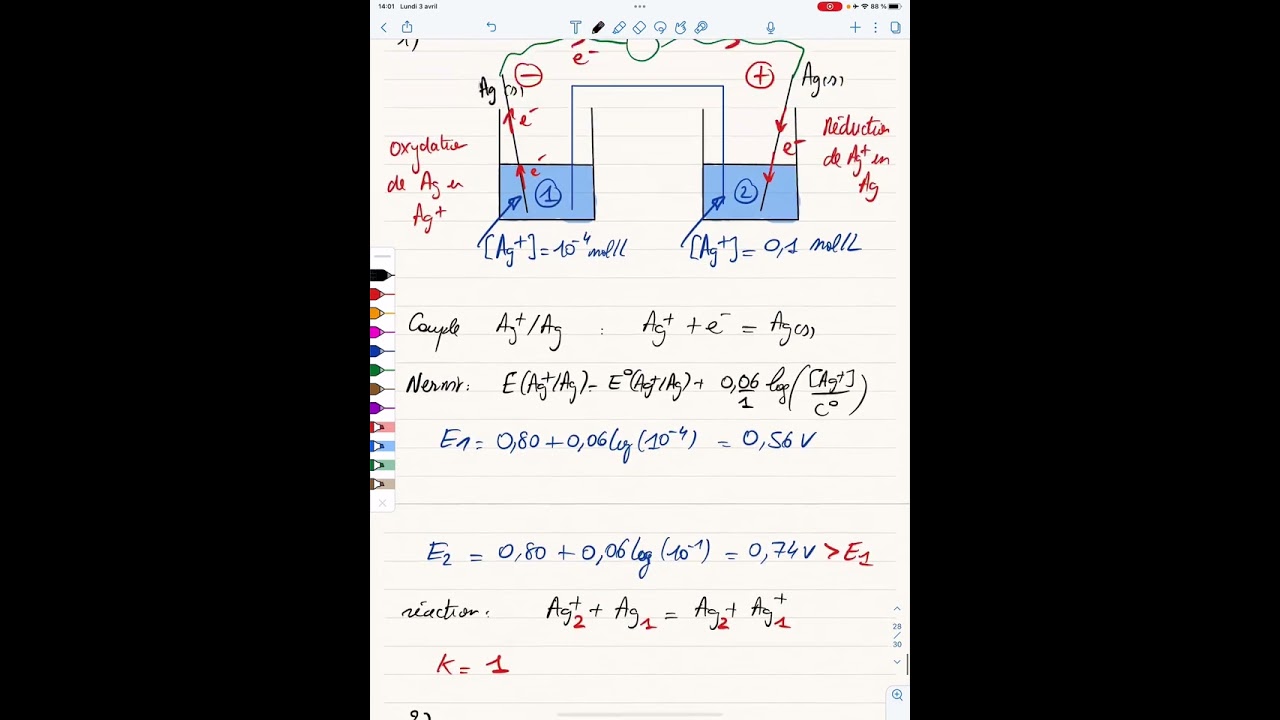 14:01 Lundi 3 avril
88 %
T
1)
e⁻
Ag(s) ⊖ ⊕ Ag(s)
e⁻
Oxydation
de Ag en
Ag⁺
e⁻
1
e⁻
2
Réduction
de Ag⁺ en
Ag
[Ag⁺] = 10⁻⁴ mol/L
[Ag⁺] = 0,1 mol/L
Couple Ag⁺/Ag : Ag⁺ + e⁻ = Ag(s)
Nernst : E(Ag⁺/Ag) = E°(Ag⁺/Ag) + 0,06/1 log([Ag⁺]/C°)
E1 = 0,80 + 0,06 log(10⁻⁴) = 0,56 V
E2 = 0,80 + 0,06 log(10⁻¹) = 0,74 V > E1
réaction : Ag₂⁺ + Ag₁ = Ag₂ + Ag₁⁺
K = 1
28
/
30
2)